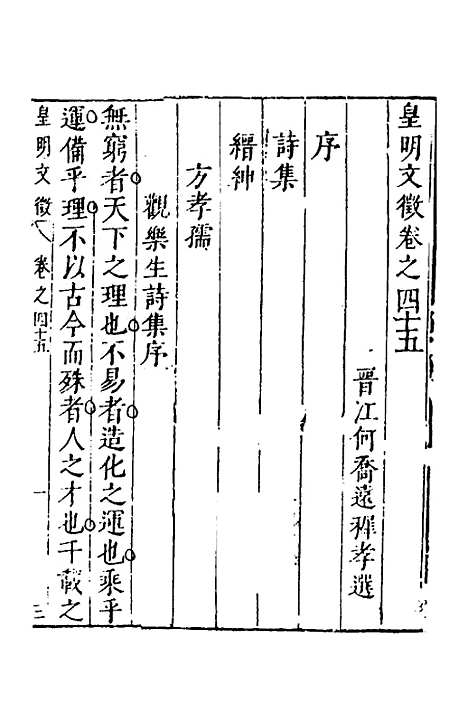 皇明文徵卷之四十五
晉江何喬遠稺孝選
序
詩集
縉紳
方孝孺
觀樂生詩集序
無窮者天下之理也不易者造化之運也乘乎
運備乎理不以古今而殊者人之才也千載之
皇明文徵 卷之四十五 一